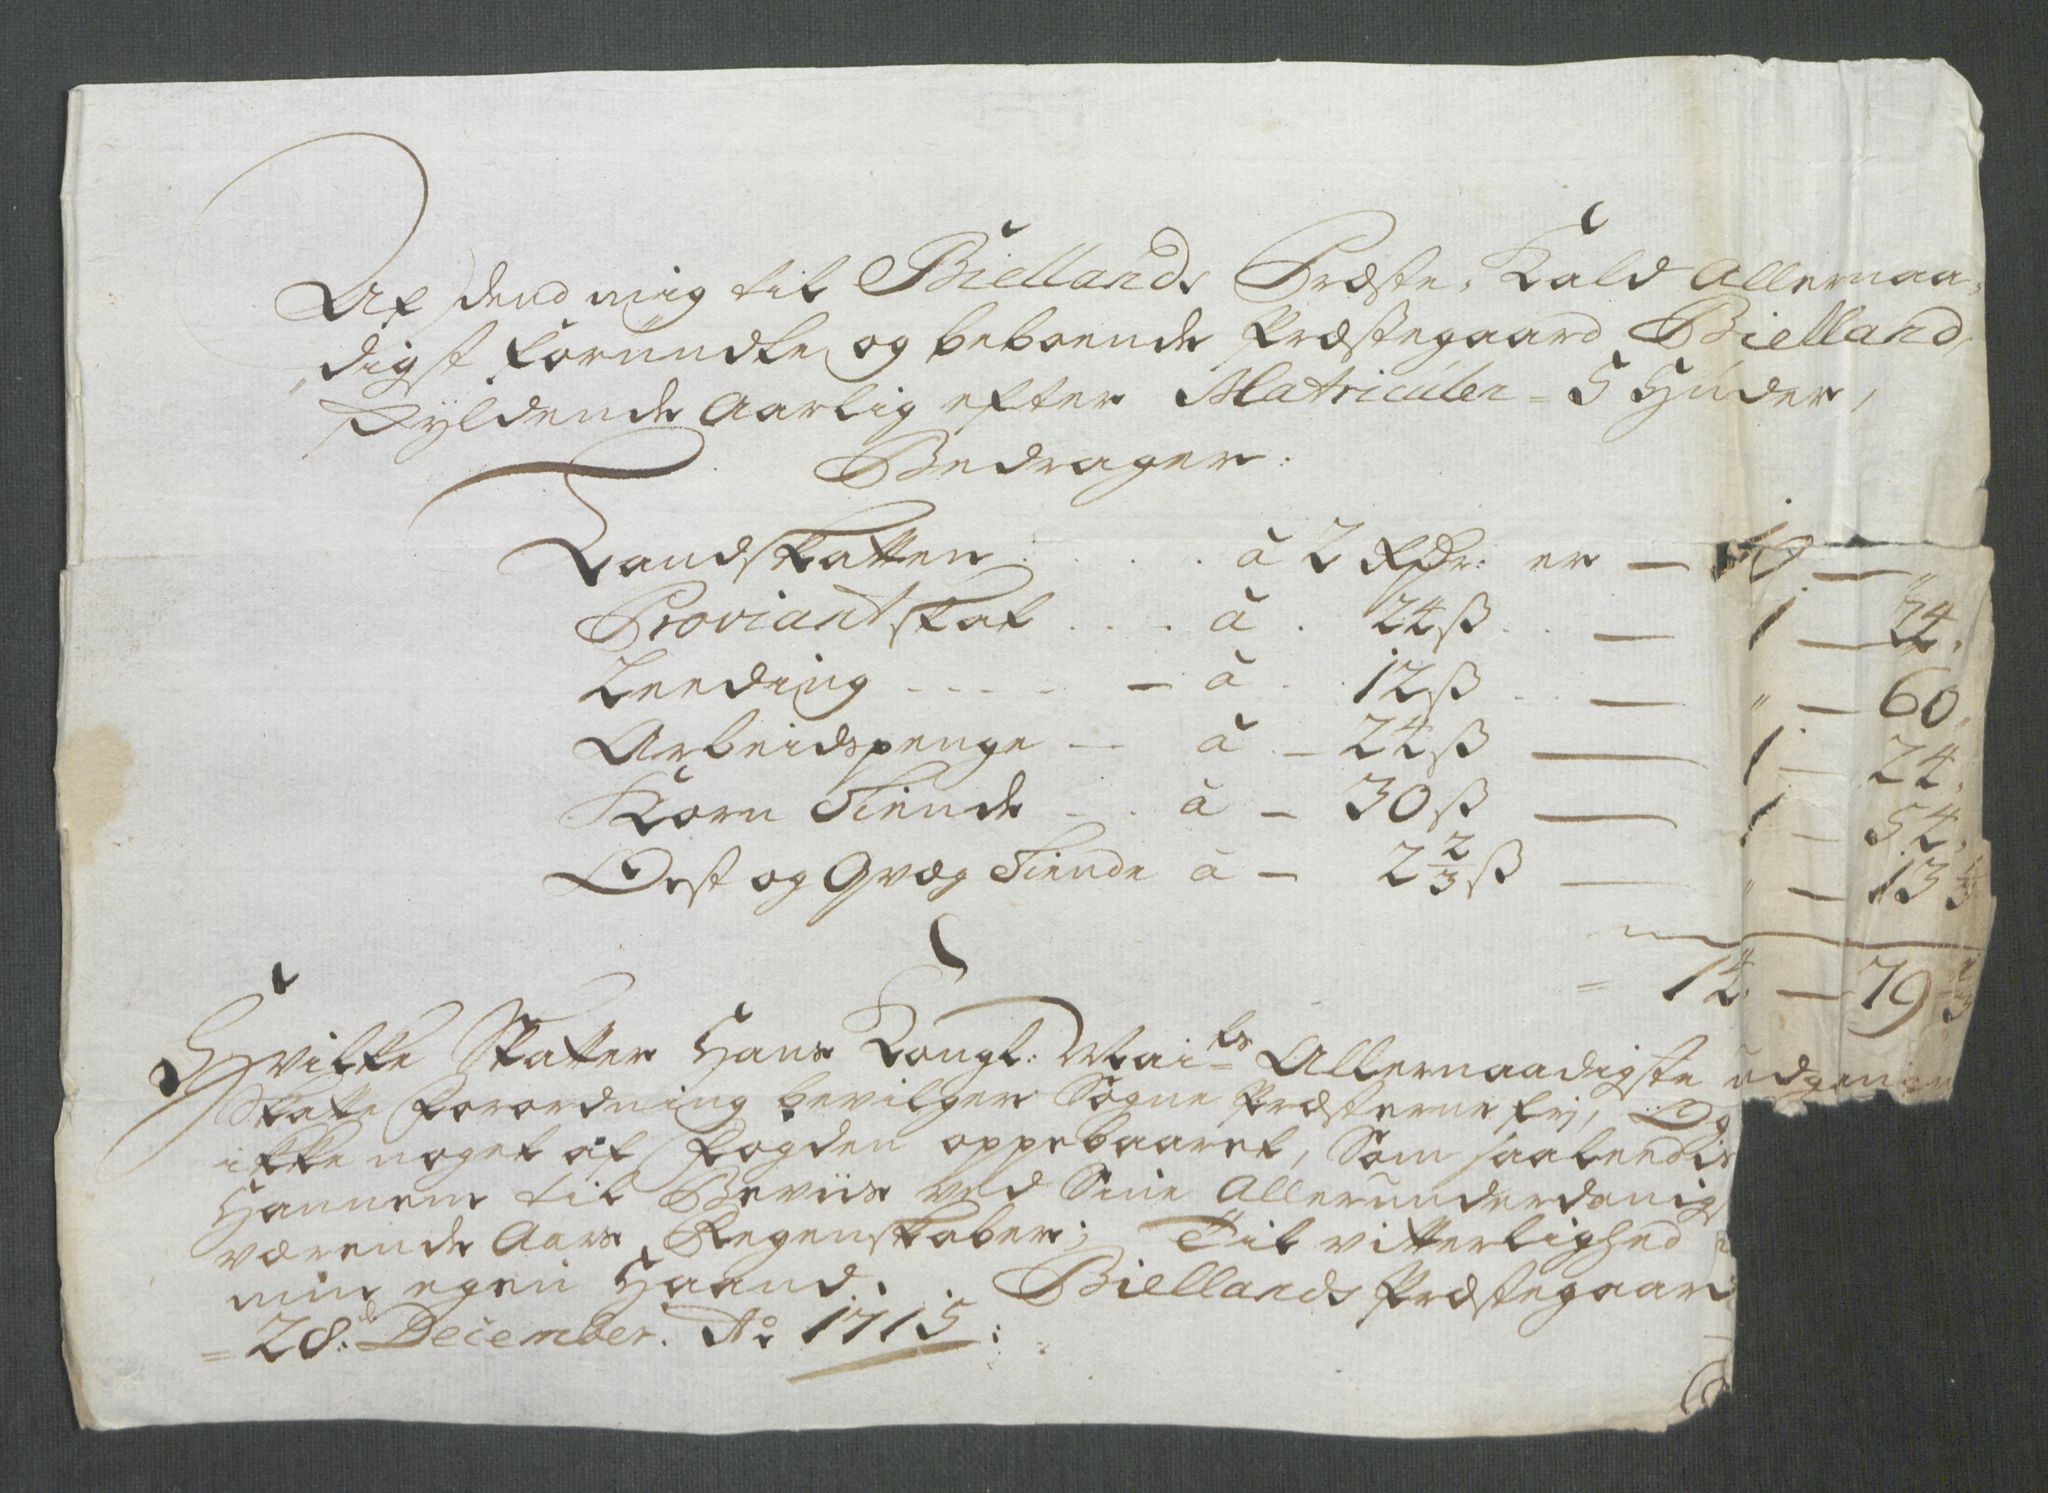 Af dend mig til Biellands Præste-Kald Allernaa-
digst forundte og beboende Præstegaard Bielland,
skyldende Aarlig efter Matriculen = 5 Huder,
Bedrager:
Landskatten . . . . à 2 Rdr: er — 10 — „
Proviantskat . . . à . 24 ß . . — 1 — 24.
Leeding . . . . — à . . 12 ß . . — „ — 60.
Arbeidspenge — à — 24 ß — 1 — 24.
Korn Tiende . . à — 30 ß — 1 — 54.
Ost og Qvæg Tiende à — 2 2/3 ß — „ — 13 1/3
= 14. — 79 1/3
Hvilke Skatter Hans Kongl: Mai:ts Allernaadigste udgangne
Skatte Forordning bevilger Sogne Præsterne frj, Og
ikke noget af Fogden oppebaaret, Som saaledis
Hannem til Beviis ved Sine Allerunderdanigst
værende Aars Regenskaber; Til vitterlighed
min egen Haand. Biellands Præstegaard
= 28: December. Ao 1715: